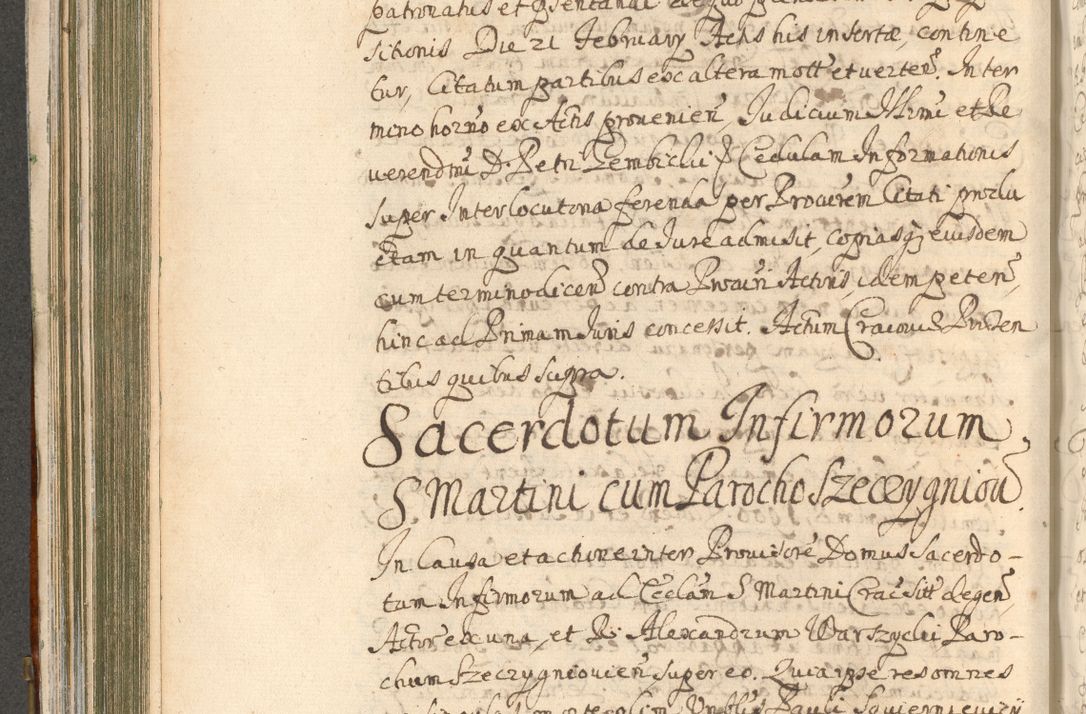 patronatus et
sitionis Die 21 February Actis his insertæ, contine
tur, Citatum partibus ex altera mott et verteñ. In ter
mino horño ex Actis provenieñ, Judicium Illrmi et Re
verendmi D. Petri Gembiclii Cedulam Informationis
super Interlocutoria ferenda per Procurem Citati produ
ctam in quantum de Jure admisit, copiasqz eiusdem
cum termino diceñ contra Procuri Actoris, id em peteñ,
hinc ad Primam Juris concessit. Actum Cracoviæ Præsen
tibus quibus supra.
Sacerdotum Infirmorum
S Martini cum Parocho Szeczygniou
In Causa et actione inter Provisore Domus Sacerdo-
tum Infirmorum ad Ecclam S Martini Crac sitt degeñ
Actore ex una, et Alexandrum Warszycki Paro-
chum Szeczygniovieñ super eo. Quia ipse res omnes
Pauli